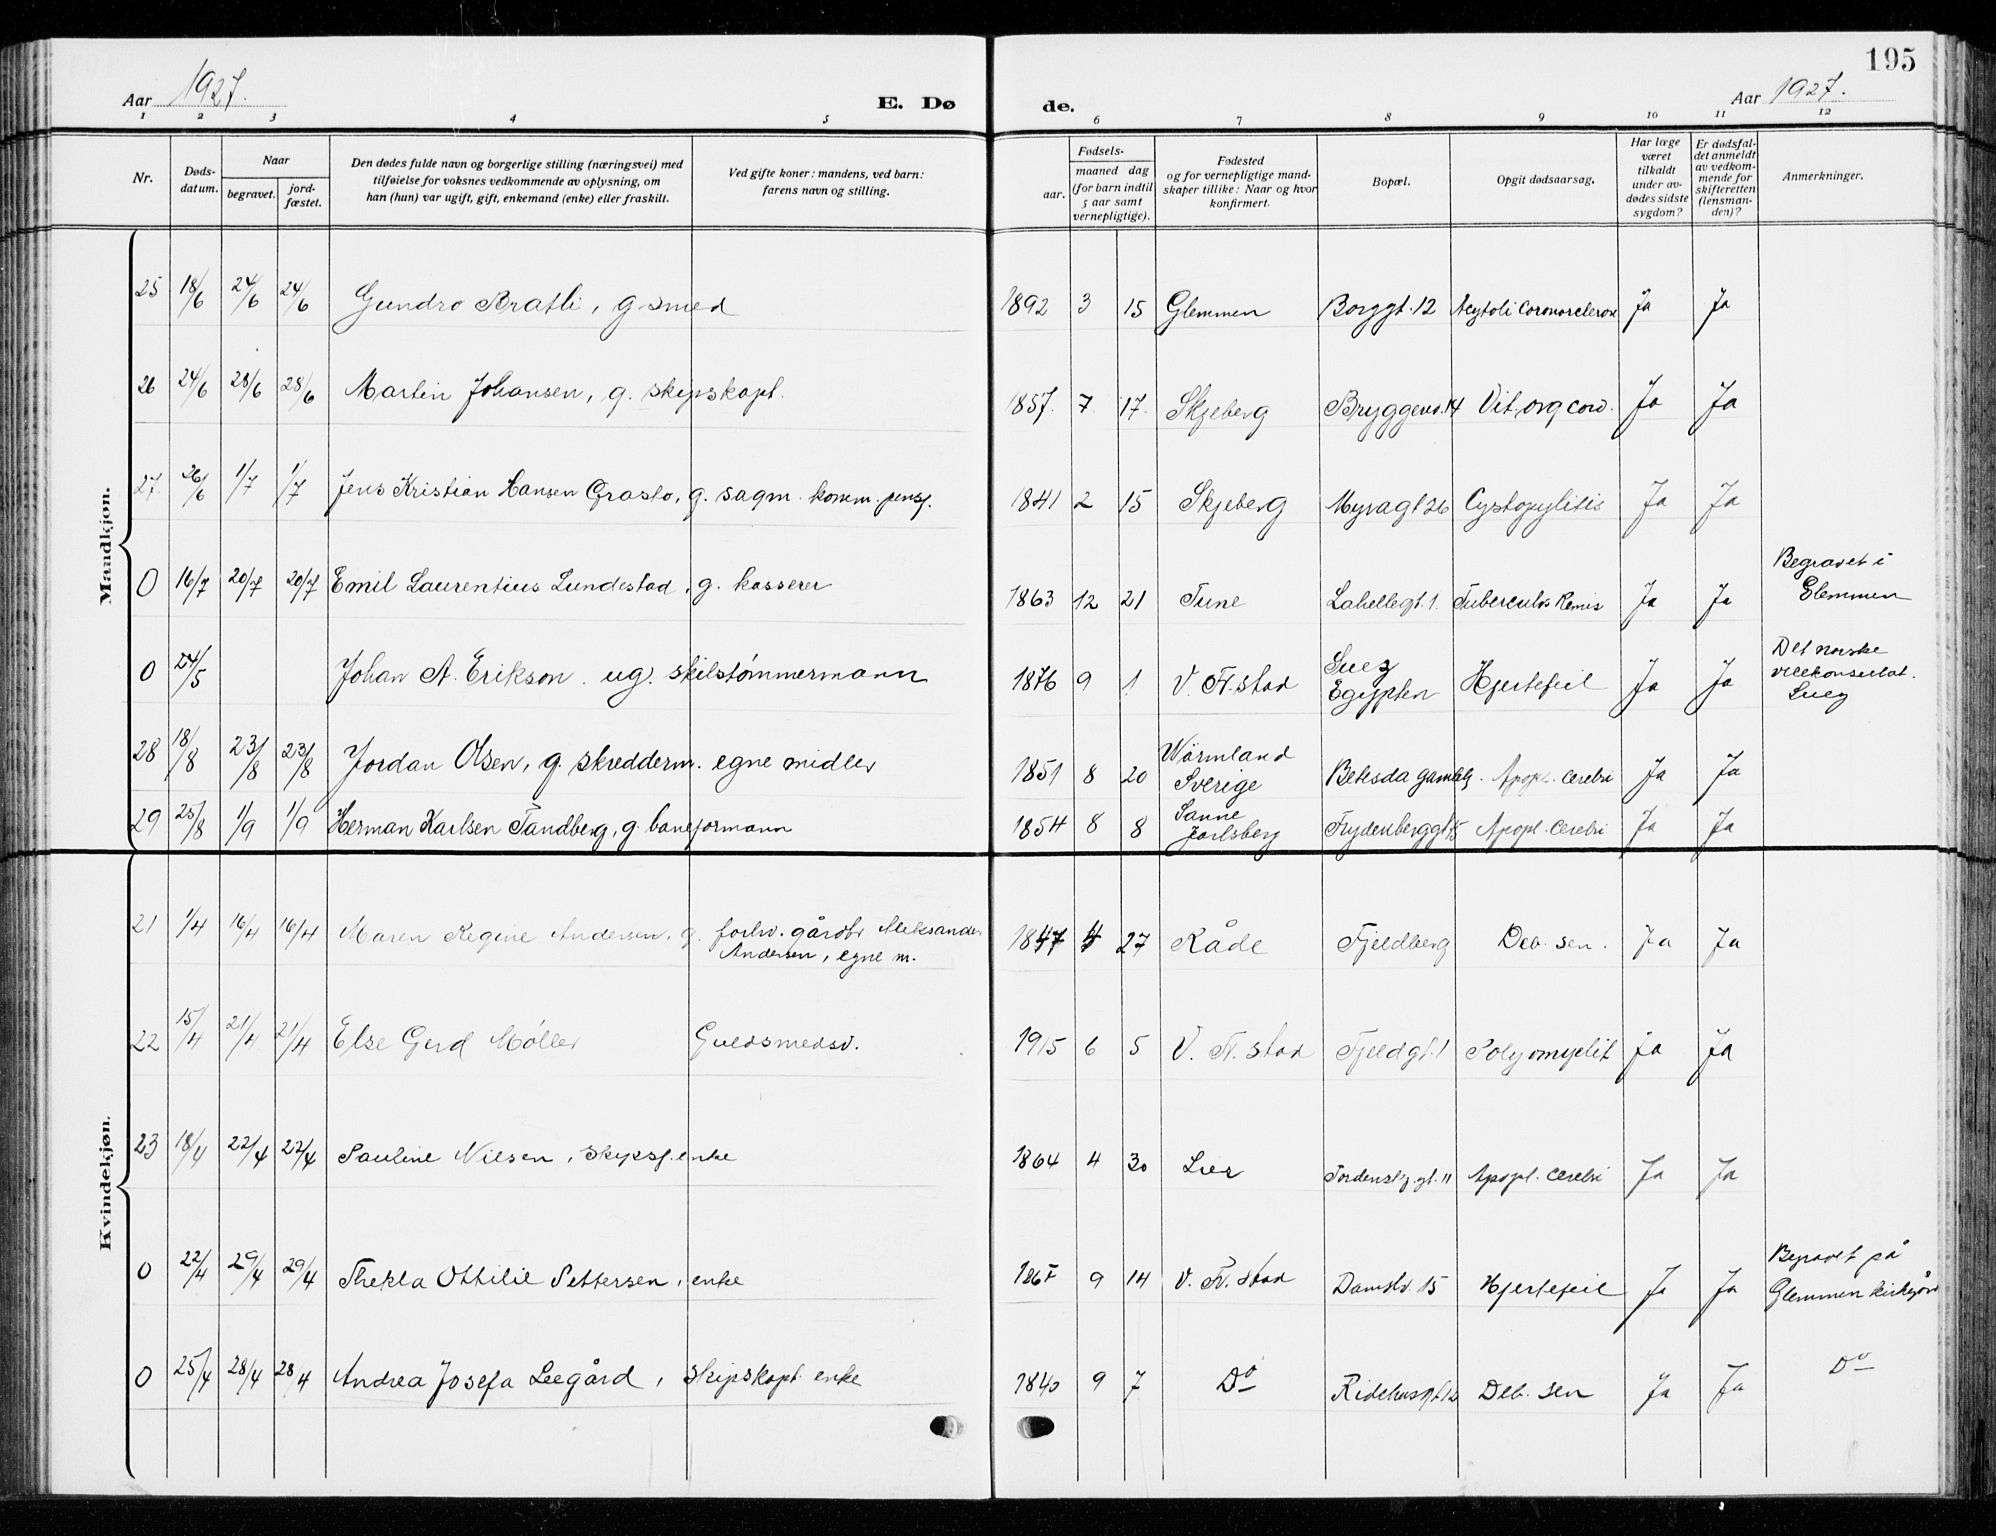 195
Aar 1927.
E. Dø
de.
Aar 1927.
1 2 3 4 5 6 7 8 9 10 11 12
Nr.
Døds-
datum.
Naar
begravet.
jord-
fæstet.
Den dødes fulde navn og borgerlige stilling (næringsvei) med
tilføielse for voksnes vedkommende av oplysning, om
han (hun) var ugift, gift, enkemand (enke) eller fraskilt.
Ved gifte koner: mandens, ved barn:
farens navn og stilling.
Fødsels-
aar.
maaned dag
(for barn indtil
5 aar samt
vernepligtige).
Fødested
og for vernepligtige mand-
skaper tillike: Naar og hvor
konfirmert.
Bopæl.
Opgit dødsaarsag.
Har læge
været
tilkaldt
under av-
dødes sidste
sygdom?
Er dødsfal-
det anmeldt
av vedkom-
mende for
skifteretten
(lensman-
den)?
Anmerkninger.
Mandkjøn.
25 18/6 24/6 24/6 Gundro Bratli, g. smed 1892 3 15 Glemmen Borggt. 12 Ja Ja
26 24/6 28/6 28/6 Martin Johansen, g. skipskapt. 1857. 7. 17. Skjeberg Bryggevo. 14 Vit. org cord. Ja Ja
27. 26/6 1/7 1/7 Jens Kristian Hansen Grasto, g. sagm. komm. pensj. 1841 2 15 Skjeberg Myragt 26 Cystopylitis Ja Ja
0 16/7 20/7 20/7 Emil Laurentius Lundestad, g. kasserer 1863 12 21 Tune Lahellegt. 1. Tuberculos Renis Ja Ja Begravet i
Glemmen
0 24/5 Johan A. Erikson. ug. skibstømmermann 1876 9 1 V. Fr.stad Suez
Egypten Hjertefeil Ja Ja Det norske
visekonsulat.
Suez
28 18/8 23/8 23/8 Jordan Olsen, g. skredderm. egne midler 1851 8 20 Wärmland
Sverige Betesda gamleh. Apopl. cerebri Ja Ja
29 25/8 1/9 1/9 Herman Karlsen Tandberg, g. baneformann 1854 8 8 Sanne
Jarlsberg Frydenberggt 15 Apopl. cerebri Ja Ja
Kvindekjøn.
21 1/4 16/4 16/4 Maren Regine Andersen, g. forhv. gårdbr Aleksander
Andersen, egne m. 1847 4 27 Råde Fjeldberg Deb. sen. Ja Ja
22 15/4 21/4 21/4 Else Gerd Møller Guldsmedsv. 1915 6 5 V. Fr. stad Fjeldgt. 1 Polyomyelit Ja Ja
23 18/4 22/4 22/4 Pauline Nilsen, skipsf. enke 1864 4 30 Lier Tordenskj. gt. 11 Apopl. cerebri Ja Ja
0 22/4 29/4 29/4 Thekla Ottilie Pettersen, enke 9 14 V. Fr. stad Damstv. 15 Hjertefeil Ja Ja Begravet på
Glemmen kirkegård
0 25/4 28/4 28/4 Andrea Josefa Leegård, skipskapt enke 1840 9 7 Do Ridehusgt 12 Deb. sen Ja Ja Do